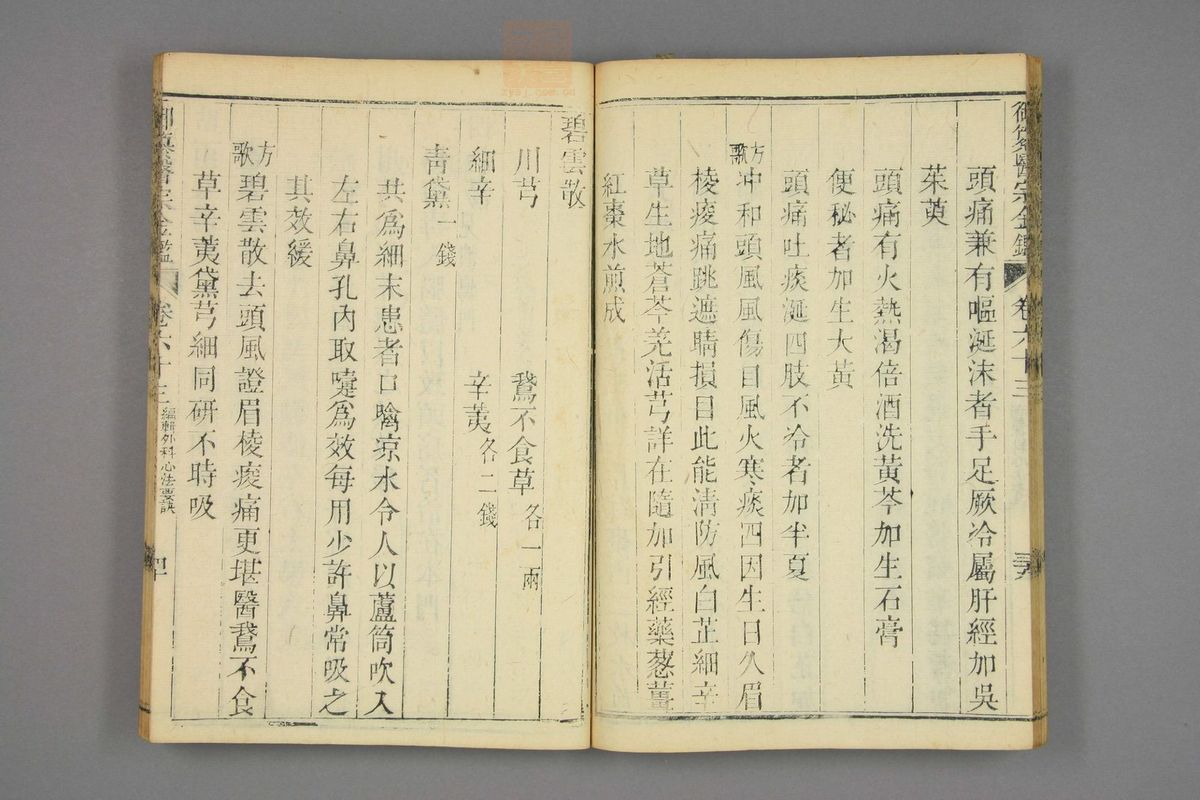 御纂醫宗金鑑 卷六十三
頭痛兼有嘔涎沫者手足厥冷屬肝經加吳
茱萸
頭痛有火熱渴倍酒洗黃芩加生石膏
便秘者加生大黃
頭痛吐痰涎四肢不冷者加半夏
方歌 冲和頭風風傷目風火寒痰四因生日久眉
棱痠痛跳遮睛損目此能清防風白芷細辛
草生地蒼芩羌活芎詳在隨加引經藥葱薑
紅棗水煎成
碧雲散
川芎 鵞不食草各一兩
細辛 辛荑各二錢
青黛一錢
共爲細末患者口噙凉水令人以蘆筒吹入
左右鼻孔內取嚏爲效每用少許鼻常吸之
其效緩
方歌 碧雲散去頭風證眉棱痠痛更堪醫鵞不食
草辛荑黛芎細同研不時吸
御纂醫宗金鑑 卷六十三 編輯外科心法要訣